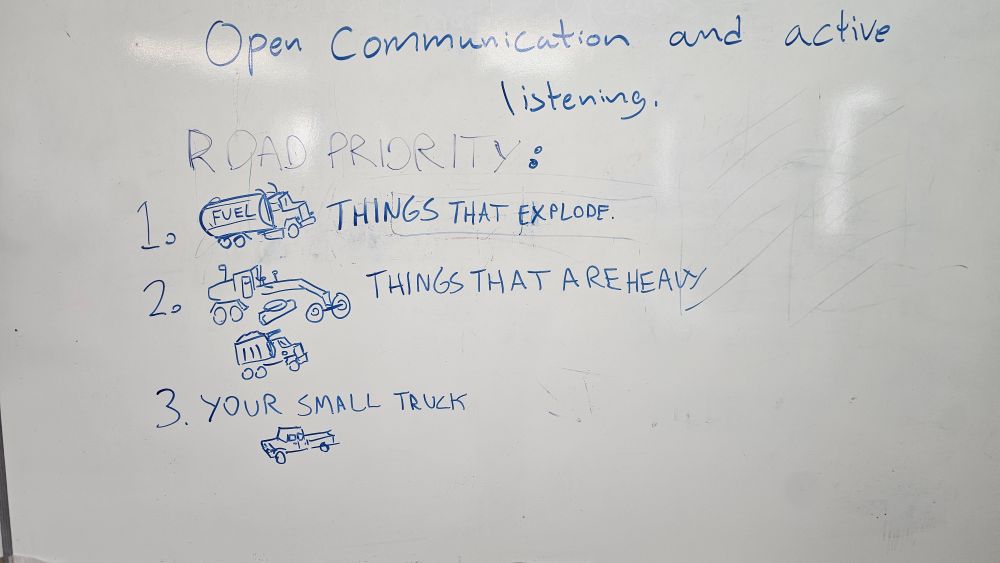 Open Communication and active
listening.
ROAD PRIORITY:
1. FUEL THINGS THAT EXPLODE.
2. THINGS THAT ARE HEAVY
3. YOUR SMALL TRUCK